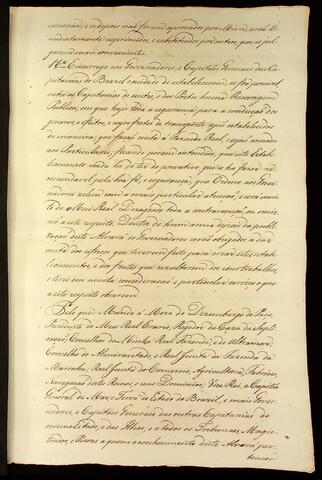 economia, e depois não forem approvados por Mim, serão immediatamente
supprimidos, e substituidos por outros, que se julguem
mais convenientes.
Encarrego aos Governadores, e Capitães Generaes das Capitanias
do Brazil o cuidado de estabelecerem, se for possivel
entre as Capitanias do centro, e dos Portos huma Recovagem
Publica, em que haja toda a segurança para a conducção dos
generos, e effeitos, e cujos fretes de transporte sejão estabelecidos
de maneira, que fação conta á Fazenda Real, e sejão commodos
aos Particulares, ficando porem entendido, que este Estabelecimento
nada ha de ter de privativo que só ha fazer recommendavel
pela boa fé, e segurança, que Ordeno aos Governadores
zelem com a mais particular attenção, e será muito
do Meu Real Desagrado toda a contravenção, ou omissão
a este respeito. Dentro de hum anno depois da publicação
deste Alvará os Governadores serão obrigados a dar
conta dos esforços que tiverem feito para crear estes Estabelecimentos,
e dos frutos que resultarem dos seus trabalhos,
e terei em muita consideração o particular serviço que
a este respeito obrarem.
Pelo que: Mando á Meza do Dezembargo do Paço,
Presidente do Meu Real Erario, Regedor da Caza da Supplicação,
Conselhos da Minha Real Fazenda, e do Ultramar,
Conselho do Almirantado, e Real Junta da Fazenda da
Marinha, Real Junta do Comercio, Agricultura, Fabricas,
Navegação destes Reinos, e seus Dominios, Vice Rei, e Capitão
General de Mar, e Terra do Estado do Brazil, e mais Governadores,
e Capitães Generaes das outras Capitanias do
mesmo Estado, e das Ilhas, e a todos os Tribunaes, Magistrados,
e Pessoas a quem o conhecimento deste Alvará pertencer